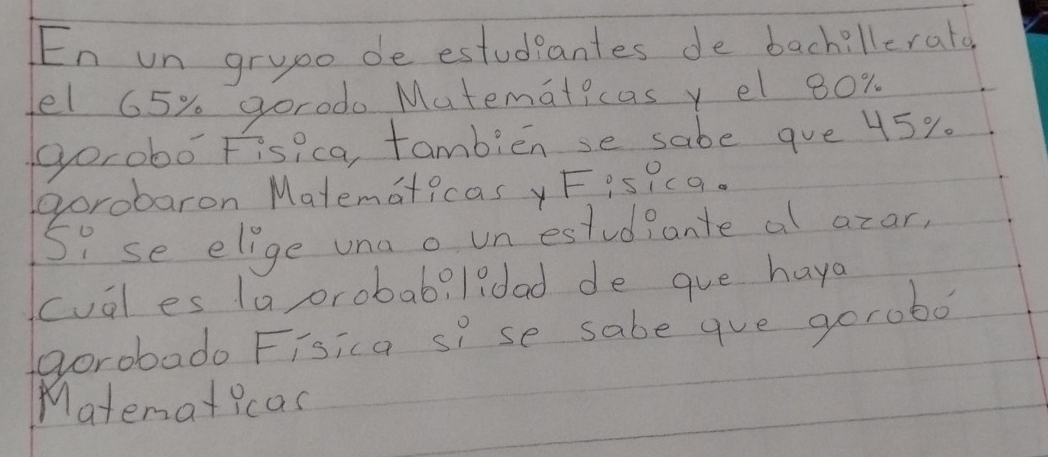 En un grupo de estudiantes de bachillerato
el 65% aprodo Matemáticas y el 80%
aprobó Física, también se sabe que 45%
aprobaron Matemáticas y Física.
Si se elige una o un estudiante al azar,
cuál es la probabilidad de que haya
aprobado Física si se sabe que aprobó
Matematicas